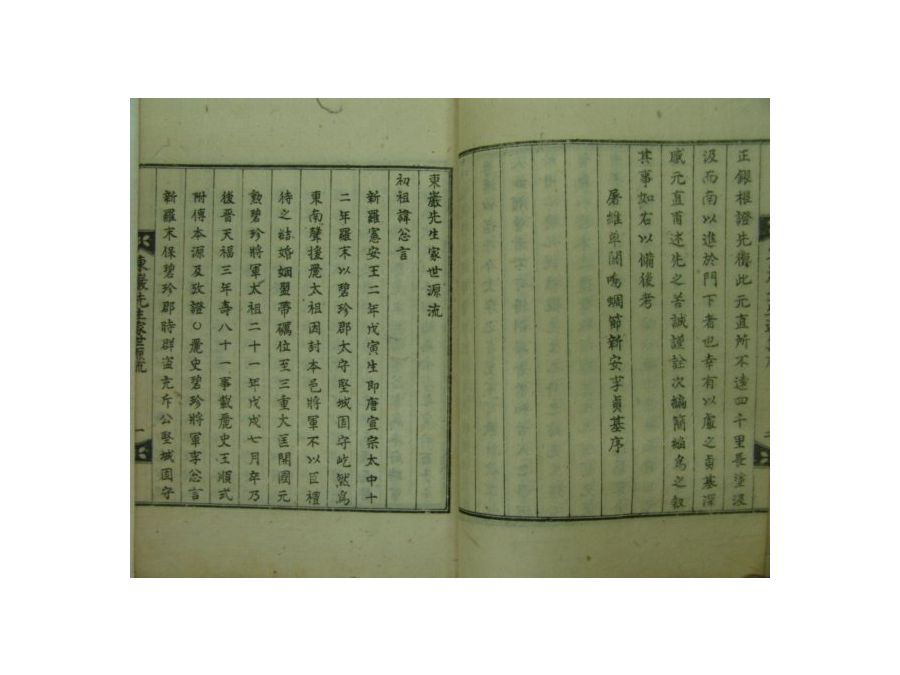 正銀根證先復此元直所不遠四千里長塗汲
汲而南以進於門下者也幸有以處之貞基深
感元直甫述先之苦誠謹詮次摭簡編爲之敍
其事如右以備後考
屠維單閼鳴蜩節新安李貞基序
東巖先生家世源流
初祖諱忩言
新羅憲安王二年戊寅生即唐宣宗太中十
二年羅末以碧珍郡太守堅城固守屹然爲
東南聲援麗太祖因封本邑將軍不以臣禮
待之結婚姻盟帶礪位至三重大匡開國元
勲碧珍將軍太祖二十一年戊戌七月卒乃
後晉天福三年壽八十一事載麗史王順式
附傳本源及攷證○麗史碧珍將軍李忩言
新羅末保碧珍郡時群盗充斥公堅城固守
東巖先生家世源流 一